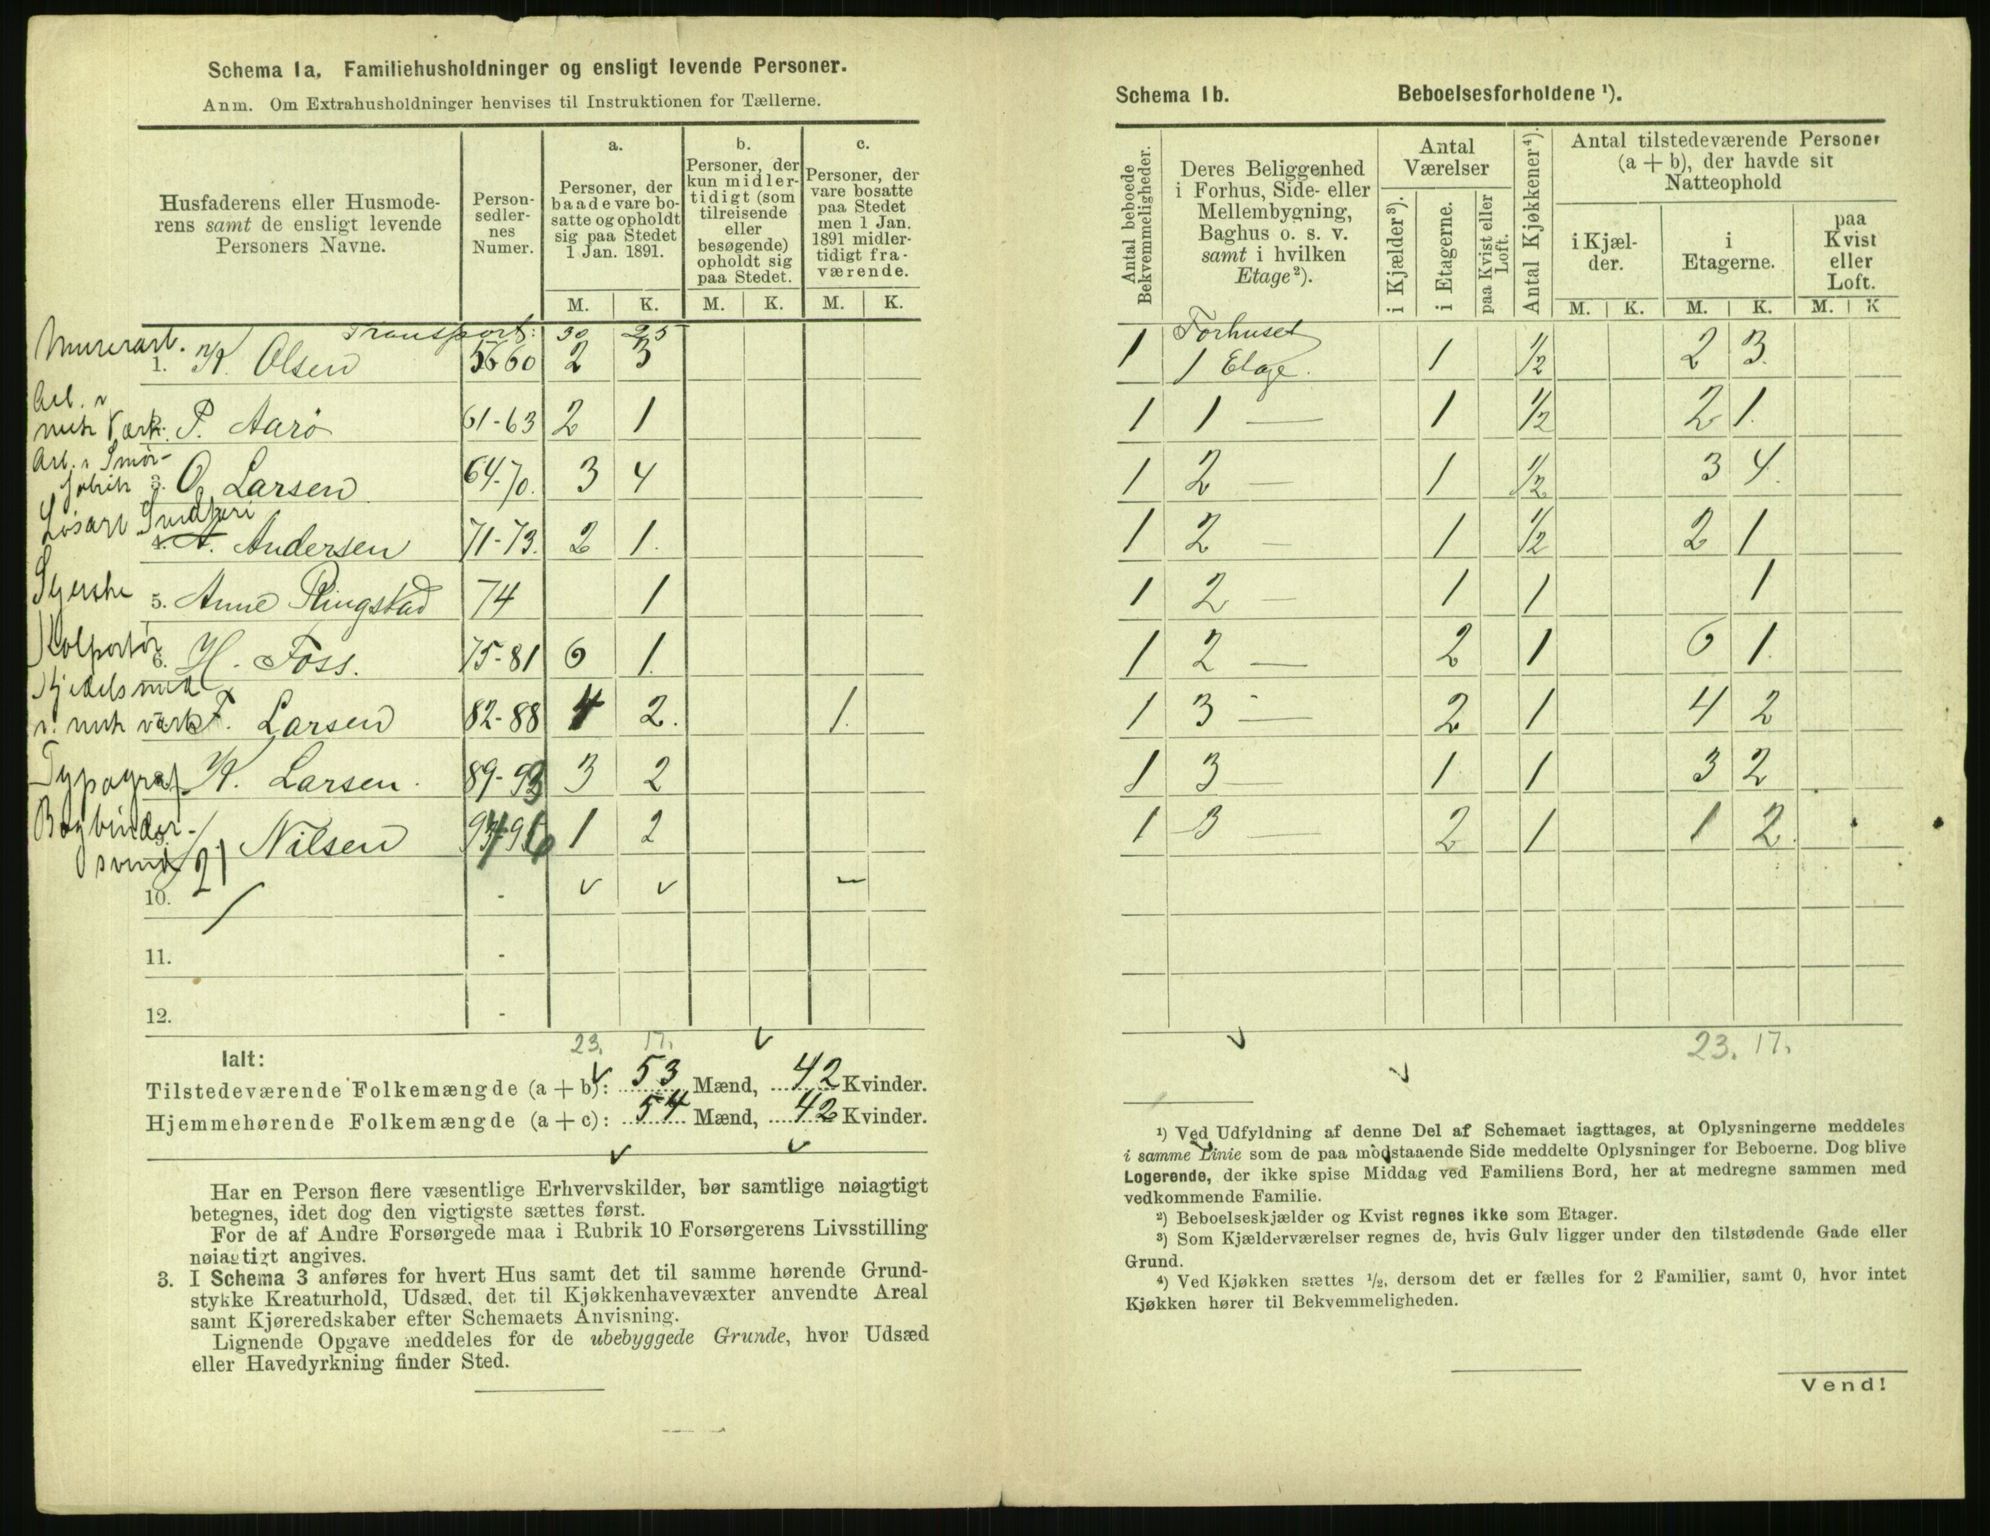 Schema 1a. Familiehusholdninger og ensligt levende Personer.
Anm. Om Extrahusholdninger henvises til Instruktionen for Tællerne.
Husfaderens eller Husmode-
rens samt de ensligt levende
Personers Navne.
Person-
sedler-
nes
Numer.
a.
Personer, der
baade vare bo-
satte og opholdt
sig paa Stedet
1 Jan. 1891.
b.
Personer, der
kun midler-
tidigt (som
tilreisende
eller
besøgende)
opholdt sig
paa Stedet.
c.
Personer, der
vare bosatte
paa Stedet
men 1 Jan.
1891 midler-
tidigt fra-
værende.
M. K. M. K. M. K.
Transport: 30 25
Murerarb. 1. K. Olsen 56 60 2 3
Arb. v
mek Værk. P. Aarö 61-63 2 1
Arb. v Smör-
fabrik 3. O. Larsen 64-70. 3 4
Løsarb Smedjeri
4. A. Andersen 71-73. 2 1.
Syerske 5. Anne Ringstad 74 1
Kolportör 6. H. Foss. 75-81 6 1.
Kjedelsmed
v. mek værk F. Larsen 82-88 4 2. 1.
Typograf K. Larsen. 89-93 3 2
Bogbinder-
svend Nilsen 94-96 1 2
10.
11.
12.
23. 17.
Ialt:
Tilstedeværende Folkemængde (a + b): 53 Mænd, 42 Kvinder.
Hjemmehørende Folkemængde (a + c): 54 Mænd, 42 Kvinder.
Har en Person flere væsentlige Erhvervskilder, bør samtlige nøiagtigt
betegnes, idet dog den vigtigste sættes først.
For de af Andre Forsørgede maa i Rubrik 10 Forsørgerens Livsstilling
nøiagtigt angives.
3. I Schema 3 anføres for hvert Hus samt det til samme hørende Grund-
stykke Kreaturhold, Udsæd, det til Kjøkkenhavevæxter anvendte Areal
samt Kjøreredskaber efter Schemaets Anvisning.
Lignende Opgave meddeles for de ubebyggede Grunde, hvor Udsæd
eller Havedyrkning finder Sted.
Schema 1b. Beboelsesforholdene ¹).
Antal beboede
Bekvemmeligheder.
Deres Beliggenhed
i Forhus, Side- eller
Mellembygning,
Baghus o. s. v.
samt i hvilken
Etage²).
Antal
Værelser
i Kjælder³).
i Etagerne.
paa Kvist eller
Loft.
Antal Kjøkkener⁴).
Antal tilstedeværende Personer
(a + b), der havde sit
Natteophold
i Kjæl-
der.
i
Etagerne.
paa
Kvist
eller
Loft.
M. K. M. K. M. K
Forhuset
1 1 Etage. 1 1/2 2 3.
1 1 — 1 1/2 2 1.
1 2 — 1 1/2 3 4.
1 2 — 1 1/2 2 1
1 2 — 1 1 1
1 2 — 2 1 6 1.
1 3 — 2 1 4 2
1 3 — 1 1 3 2
1 3 — 2 1 1 2.
23. 17.
¹) Ved Udfyldning af denne Del af Schemaet iagttages, at Oplysningerne meddeles
i samme Linie som de paa modstaaende Side meddelte Oplysninger for Beboerne. Dog blive
Logerende, der ikke spise Middag ved Familiens Bord, her at medregne sammen med
vedkommende Familie.
²) Beboelseskjælder og Kvist regnes ikke som Etager.
³) Som Kjælderværelser regnes de, hvis Gulv ligger under den tilstødende Gade eller
Grund.
⁴) Ved Kjøkken sættes ½, dersom det er fælles for 2 Familier, samt 0, hvor intet
Kjøkken hører til Bekvemmeligheden.
Vend!